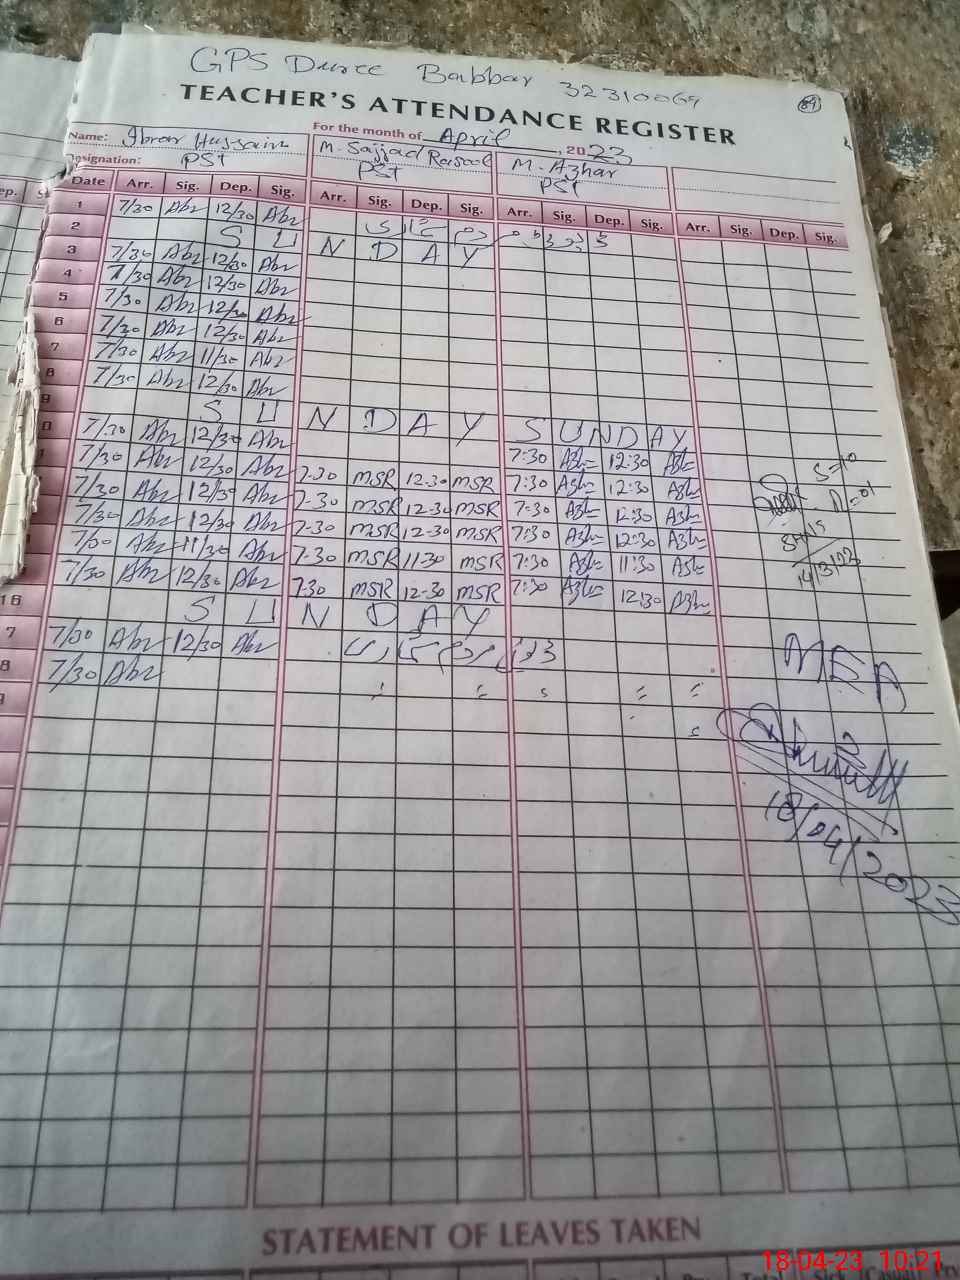 GPS Duree Babbar 32310069
TEACHER'S ATTENDANCE REGISTER
For the month of April, 2023
Name: Ibrar Hussain M. Sajjad Rasool M. Azhar
Designation: PST PST PST
Date Arr. Sig. Dep. Sig. Arr. Sig. Dep. Sig. Arr. Sig. Dep. Sig. Arr. Sig. Dep. Sig.
1 7/30 Abr 12/30 Abr
2 S U N D A Y
3 7/30 Abr 12/30 Abr
4 7/30 Abr 12/30 Abr
5 7/30 Abr 12/30 Abr
6 7/30 Abr 12/30 Abr
7 7/30 Abr 11/30 Abr
8 7/30 Abr 12/30 Abr
9 S U N D A Y S U N D A Y
0 7/30 Abr 12/30 Abr 7:30 Azh 12:30 Azh
7/30 Abr 12/30 Abr 7-30 MSR 12-30 MSR 7:30 Azh 12:30 Azh
7/30 Abr 12/30 Abr 7-30 MSR 12-30 MSR 7:30 Azh 12:30 Azh
7/30 Abr 12/30 Abr 7-30 MSR 12-30 MSR 7:30 Azh 12:30 Azh
7/30 Abr 11/30 Abr 7-30 MSR 11-30 MSR 7:30 Azh 11:30 Azh
7/30 Abr 12/30 Abr 7-30 MSR 12-30 MSR 7:30 Azh 12:30 Azh
16 S U N D A Y
7 7/30 Abr 12/30 Abr
8 7/30 Abr
S=10
A=01
14/3/23
MEA
18/04/2023
STATEMENT OF LEAVES TAKEN
18-04-23 10:21